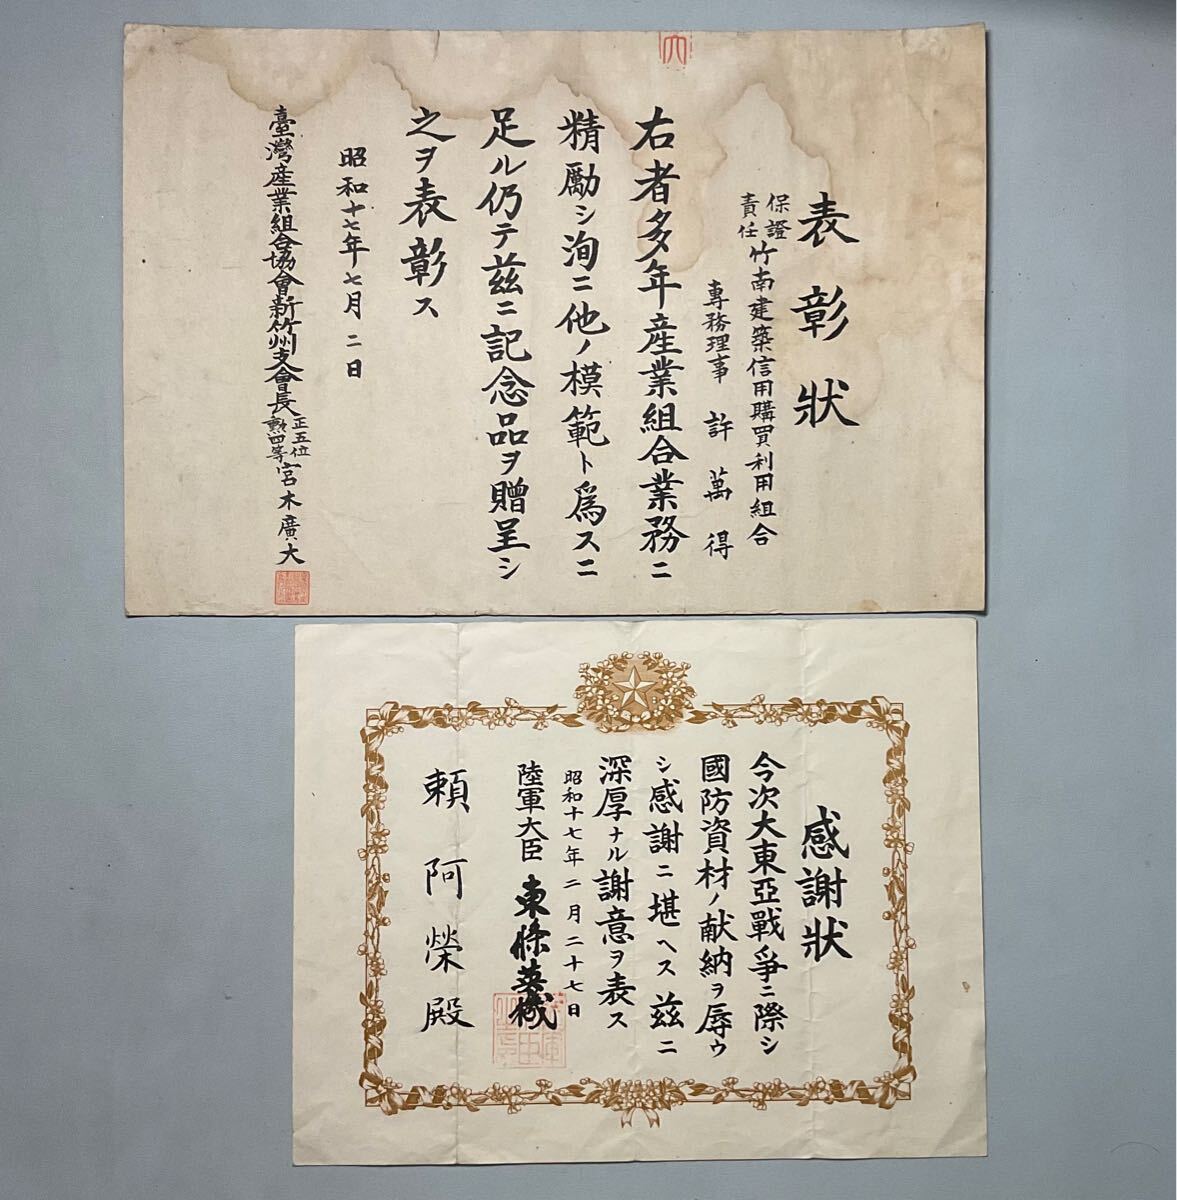 表彰狀
保證
責任
竹南建築信用購買利用組合
專務理事 許萬得
右者多年産業組合業務ニ
精勵シ洵ニ他ノ模範ト爲スニ
足ル仍テ茲ニ記念品ヲ贈呈シ
之ヲ表彰ス
昭和十七年七月二日
臺灣産業組合協會新竹州支會長
正五位
勲四等
宮木廣大
感謝狀
今次大東亞戰爭ニ際シ
國防資材ノ献納ヲ辱ウ
シ感謝ニ堪ヘス茲ニ
深厚ナル謝意ヲ表ス
昭和十七年二月二十七日
陸軍大臣 東條英機
頼阿榮殿